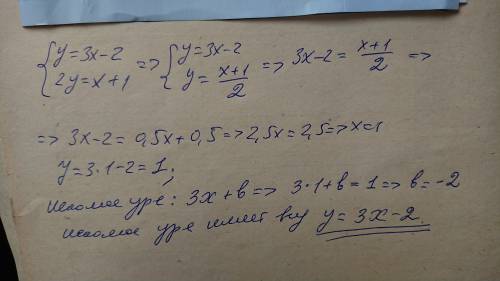 {y=3x-2 => {y=3x-2 => 3x-2 = (x+1)/2 =>
{2y=x+1 {y= (x+1)/2
=> 3x-2 = 0,5x+0,5 => 2,5x=2,5 => x=1
y=3·1-2=1;
искомое ур-е: 3x+b => 3·1+b=1 => b=-2
искомое ур-е имеет вид y=3x-2.